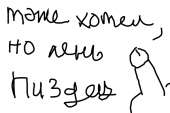 тоже хотел,
но лень
пиздец